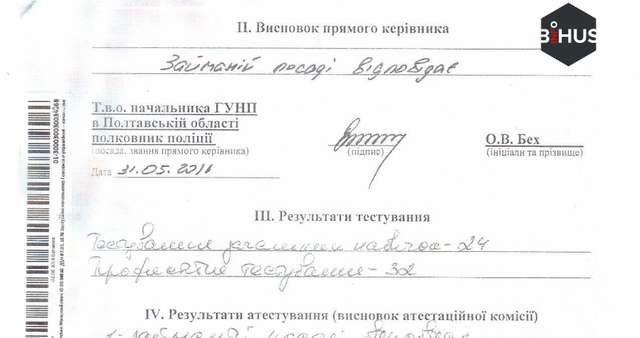 BIHUS
INFO
II. Висновок прямого керівника
Займаній посаді відповідає
Т.в.о. начальника ГУНП
в Полтавській області
полковник поліції
(посада, звання прямого керівника)
(підпис)
О.В. Бех
(ініціали та прізвище)
Дата 31.05.2016
III. Результати тестування
Тестування загальних навичок - 24
Професійне тестування - 32
IV. Результати атестування (висновок атестаційної комісії)
1 - займаній посаді